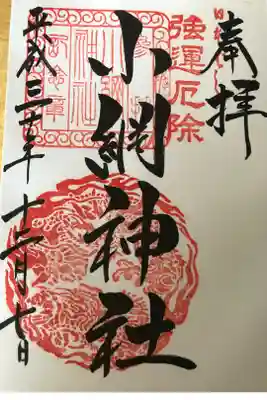 奉拝
強運厄除
小網神社
平成三十年十二月七日